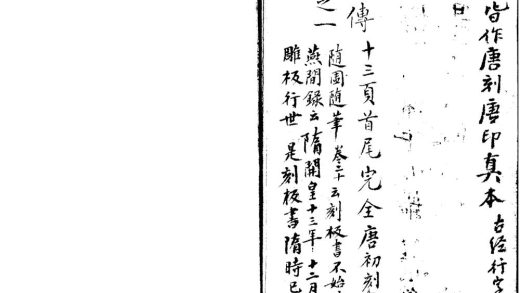 皆作唐刻唐印真本古经行字
傳十三頁首尾完全唐初刻
之一
随園随筆卷三十云刻板書不始
燕間錄云隋開皇十三年十二月
雕板行世是刻板書隋時已